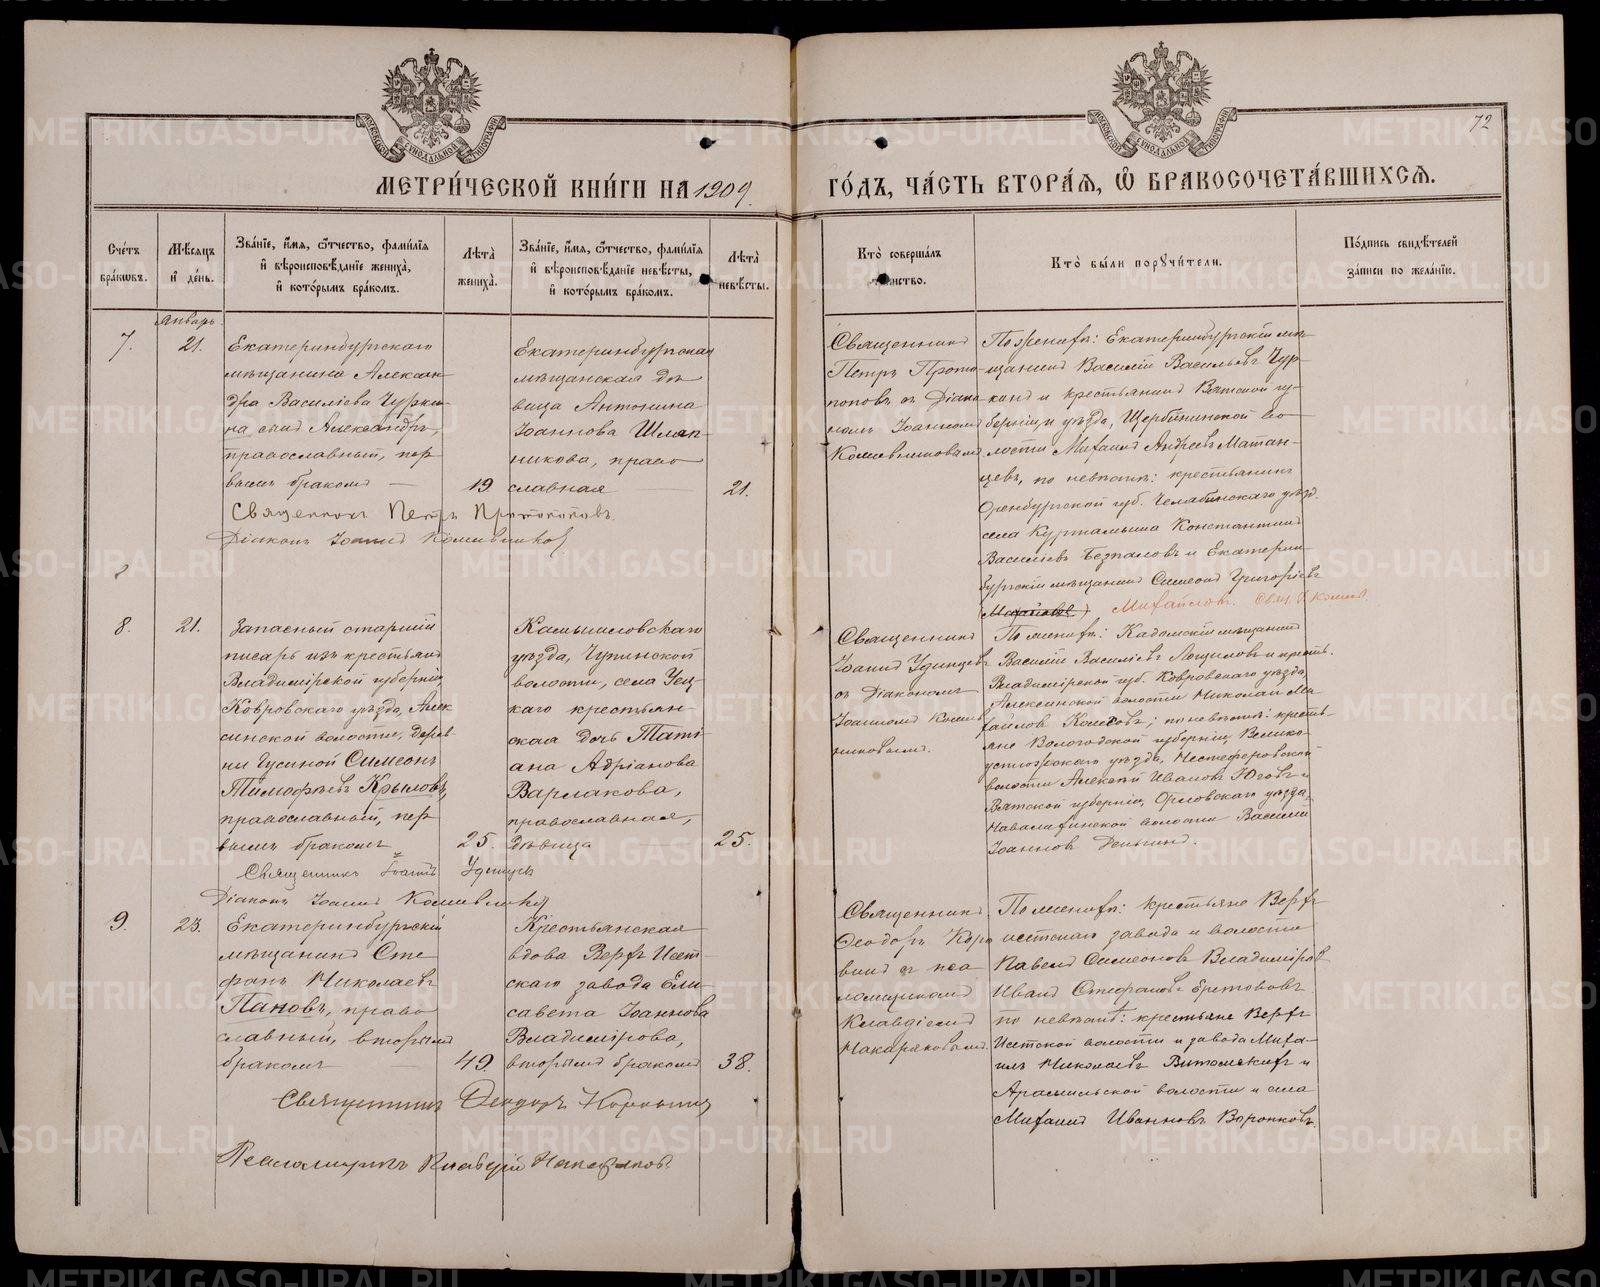 МЕТРИ́ЧЕСКОЙ КНИ́ГИ НА 1909
ГО́ДЪ, ЧА́СТЬ ВТОРА́Ѧ, Ѡ҆ БРАКОСОЧЕТА́ВШИХСѦ.
72
Сче́тъ бра́кѡвъ.
Мѣ́сѧцъ и҆ де́нь.
Зва́нїе, и҆́мѧ, ѻ҆́тчество, фами́лїѧ и҆ вѣроисповѣ́данїе жениха̀, и҆ кото́рымъ бра́комъ.
Лѣ́та жениха̀.
Зва́нїе, и҆́мѧ, ѻ҆́тчество, фами́лїѧ и҆ вѣроисповѣ́данїе невѣ́сты, и҆ кото́рымъ бра́комъ.
Лѣ́та невѣ́сты.
Кто̀ соверша́лъ таинство.
Кто̀ бы́ли порꙋчи́тели.
По́дпись свидѣ́телей за́писи по жела́нїю.
Январь
7.
21.
Екатеринбургскаго
мѣщанина Алексан-
дра Василіева Чурки-
на сынъ Александръ,
православный, пер-
вымъ бракомъ
19
Екатеринбургская
мѣщанская дѣ
вица Антонина
Іоаннова Шляп-
никова, право
славная
21.
Священникъ
Петръ Прото-
поповъ съ Діако-
номъ Іоанномъ
Кошевниковымъ
По женихѣ: Екатеринбургскій мѣ-
щанинъ Василій Васильевъ Чур-
кинъ и крестьянинъ Вятской гу-
берніи и уѣзда, Щербининской во-
лости Михаилъ Андреевъ Матан-
цевъ, по невѣстѣ: крестьянинъ
Оренбургской губ. Челябинскаго уѣзд.
села Куртамыша Константинъ
Василіевъ Безпаловъ и Екатерин-
бургскій мѣщанинъ Симеонъ Григорьевъ
Михайловъ.
Священникъ Петръ Протопоповъ.
Діаконъ Іоаннъ Кошевниковъ
8.
21.
Запасный старшій
писарь изъ крестьянъ
Владимірской губерніи,
Ковровскаго уѣзда, Алек
синской волости, дерев-
ни Гусиной Симеонъ
Тимофѣевъ Крыловъ,
православный, пер-
вымъ бракомъ
25.
Камышловскаго
уѣзда, Чупинской
волости, села
каго крестьян
ская дочь Таті
ана Адріанова
Варлакова,
православная,
дѣвица
25.
Священникъ
Іоаннъ Удинцевъ
съ Діакономъ
Іоанномъ Кошев
никовымъ.
По женихѣ: Кадомскій мѣщанинъ
Василій Василіевъ Лощиловъ и крестья.
Владимірской губ. Ковровскаго уѣзда,
Алексинской волости Николай Ми-
хайловъ; по невѣстѣ: крестья-
не Вологодской губерніи, Велико-
устюжскаго уѣзда, Нестеферовской
волости Алексѣй Ивановъ Юговъ и
Вятской губерніи, Орловскаго уѣзда,
волости Василій
Іоанновъ
Священникъ Іоаннъ Удинцевъ
Діаконъ Іоаннъ Кошевниковъ
9.
23.
Екатеринбургскій
мѣщанинъ Сте
фанъ Николаевъ
Пановъ, право
славный, вторымъ
бракомъ
49.
Крестьянская
вдова Верхъ Исет-
скаго завода Ели
савета Іоаннова
Владимірова,
вторымъ бракомъ
38.
Священникъ
Ѳеодоръ Коро
винъ съ пса
ломщикомъ
Клавдіемъ
Макаряковымъ.
По женихѣ: крестьяне Верх-
исетскаго завода и волости
Павелъ Симеоновъ Владиміровъ
Иванъ Стефановъ
по невѣстѣ: крестьяне Верхъ
Исетской волости и завода Миха-
илъ Николаевъ и
Арамильской волости и села
Михаилъ Ивановъ Воронковъ.
Священникъ Ѳеодоръ Коровинъ
Псаломщикъ Клавдій Макаряковъ